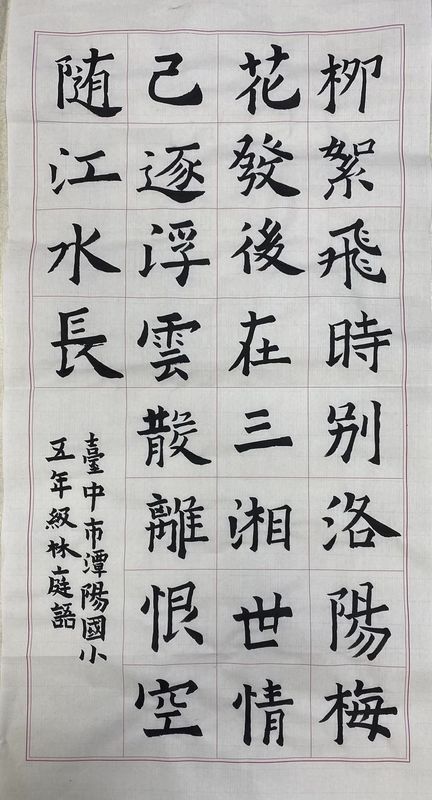 柳絮飛時别洛陽梅
花發後在三湘世情
己逐浮雲散離恨空
随江水長
臺中市潭陽國小
五年級林庭語